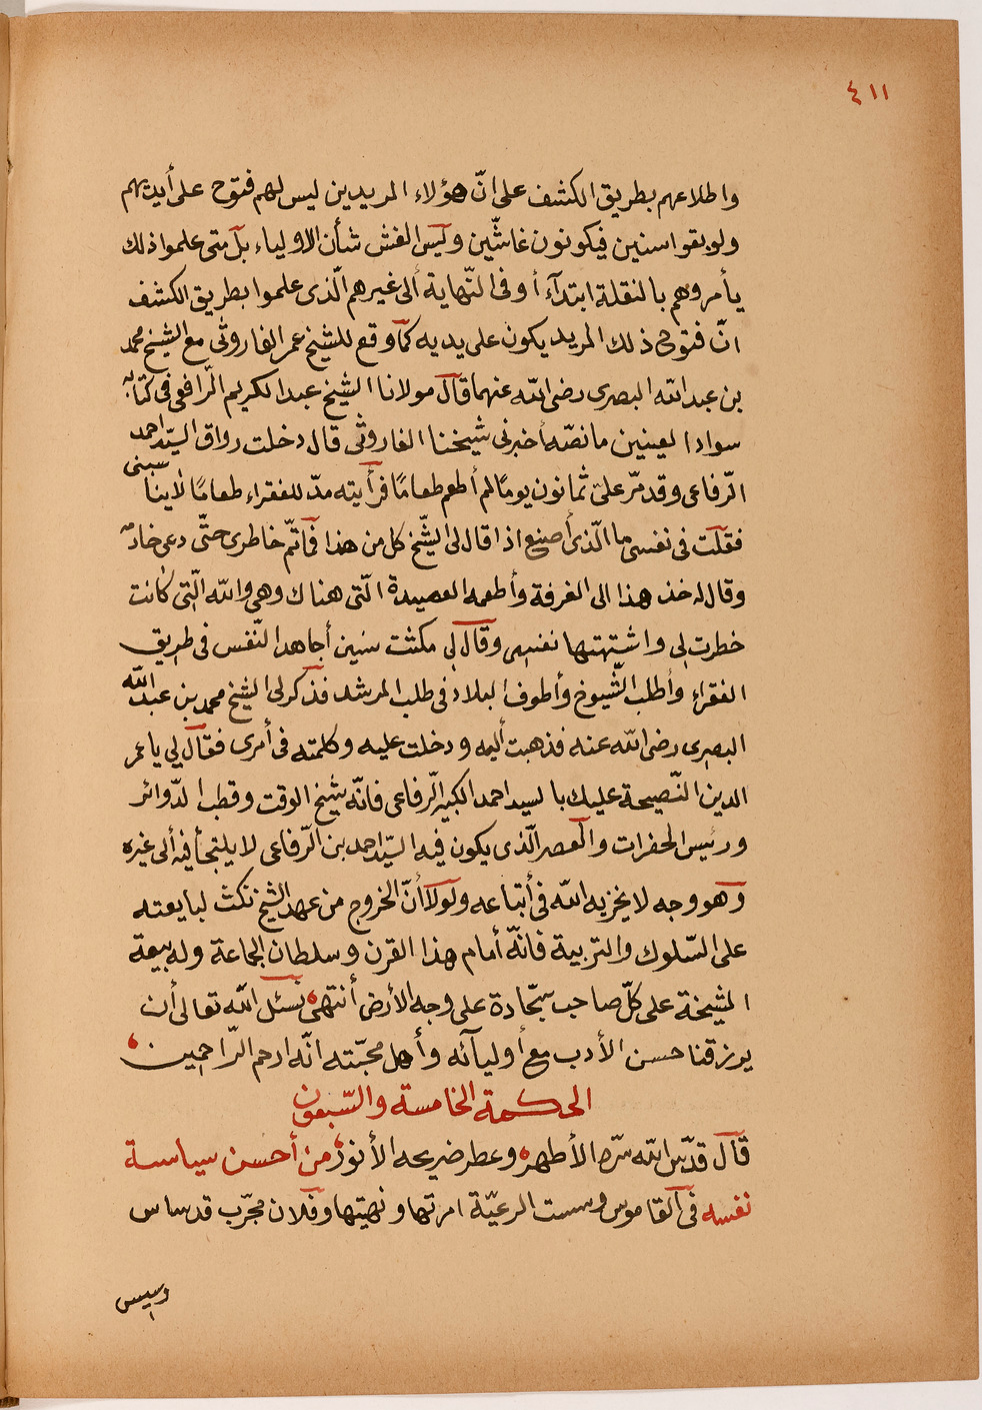 ٤١١
واطلاعهم بطريق الكشف على انّ هؤلاء المريدين ليس لهم فتوح على أيديهم
ولو بقوا سنين فيكونون غاشّين وليس الغش شأن الاولياء بل متى علموا ذلك
يأمروهم بالنقلة ابتدآء أوفى النّهاية ألى غيرهم الّذى علموا بطريق الكشف
انّ فتوح ذلك المريد يكون على يديه كما وقع للشيخ عمر الفاروثى مع الشيخ محمد
بن عبدالله البصرى رضى الله عنهما قال مولانا الشيخ عبد الكريم الرّافعى فى كتابه
سواد العينين ما نصّه أخبرنى شيخنا الفاروثى قال دخلت رواق السيّد احمد
الرّفاعى وقد مرّ علىّ ثمانون يومًا لم أطعم طعامًا فرأيته مدّ للفقراء طعامًا لايناسبنى
فقلت فى نفسى ما الّذى أصنع اذا قال لى الشّيخ كل من هذا فماتمّ خاطرى حتّى دعى خادمه
وقال له خذ هذا الى الغرفة وأطعمه العصيدة الّتى هناك وهى والله الّتى كانت
خطرت لى واشتهتها نفسى وقال لى مكثت سنين أجاهد النّفس فى طريق
الفقراء وأطلب الشّيوخ وأطوف البلاد فى طلب المرشد فذكر لى الشيخ محمد بن عبدالله
البصرى رضى الله عنه فذهبت أليه ودخلت عليه وكلمته فى أمرى فقال لي يا عمر
الدين النّصيحة عليك بالسيد احمد الكبير الرّفاعى فانّه شيخ الوقت وقطب الدّوائر
ورئيس الحضرات والعصر الّذى يكون فيه السيّد احمد بن الرّفاعى لا يلتجأ فيه ألى غيره
وهو وجه لا يخزيه الله فى أتباعه ولولا أنّ الخروج من عهد الشيخ نكث لبايعته
على السّلوك والتربية فانّه أمام هذا القرن وسلطان الجماعة وله بيعة
المشيخة على كلّ صاحب سجّادة على وجه الأرض أنتهى نسئل الله تعالى أن
يرزقنا حسن الأدب مع أوليآئه وأهل محبّته انّه ارحم الرّاحمين
الحكمة الخامسة والسّبعون
قال قدّس الله سرّه الأطهر وعطر ضريحه الأنور من أحسن سياسة
نفسه فى القاموس وسست الرعيّة امرتها ونهيتها وفلان مجرّب قد ساس
وسيس